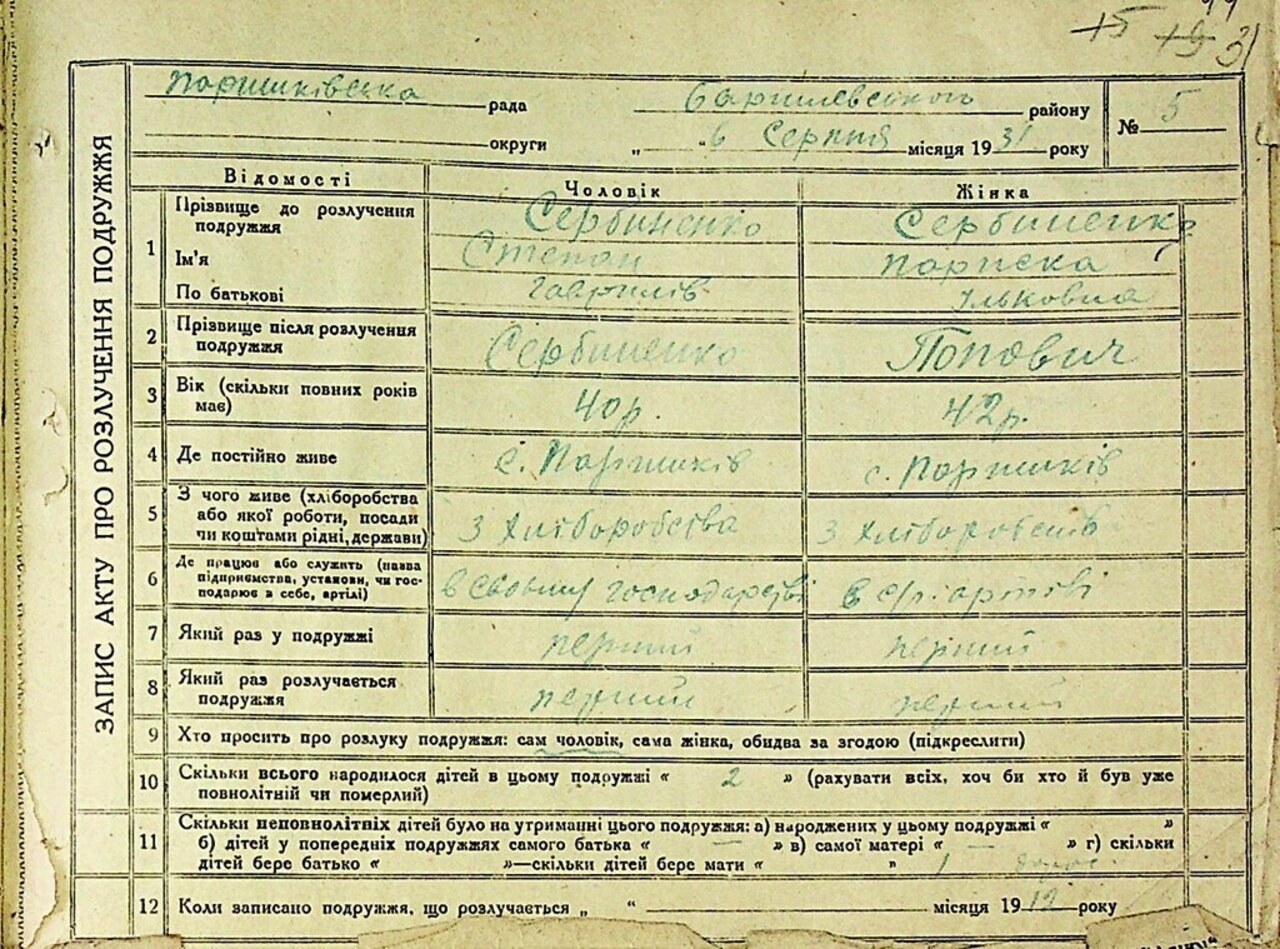 15 19 31
ЗАПИС АКТУ ПРО РОЗЛУЧЕННЯ ПОДРУЖЖЯ
Паришківська рада Баришевського району
№ 5
округи „ 6 “ Серпня місяця 1931 року
Відомості Чоловік Жінка
1 Прізвище до розлучення подружжя Сербиненко Сербиненко
Ім'я Степан Париска
По батькові Гаврилів Ільковна
2 Прізвище після розлучення подружжя Сербиненко Попович
3 Вік (скільки повних років має) 40 р. 42 р.
4 Де постійно живе с. Паришків с. Паришків
5 З чого живе (хліборобства або якої роботи, посади чи коштами рідні, держави) З хліборобства З хліборобств
6 Де працює або служить (назва підприємства, установи, чи господарює в себе, артілі) в своїму господарстві в с/г артілі
7 Який раз у подружжі перший перший
8 Який раз розлучається подружжя перший перший
9 Хто просить про розлуку подружжя: сам чоловік, сама жінка, обидва за згодою (підкреслити)
10 Скільки всього народилося дітей в цьому подружжі « 2 » (рахувати всіх, хоч би хто й був уже
повнолітній чи померлий)
11 Скільки неповнолітніх дітей було на утриманні цього подружжя: а) народжених у цьому подружжі « »
б) дітей у попередніх подружжях самого батька « — » в) самої матері « — » г) скільки
дітей бере батько « »—скільки дітей бере мати « » 1
12 Коли записано подружжя, що розлучається „ “ місяця 1912 року